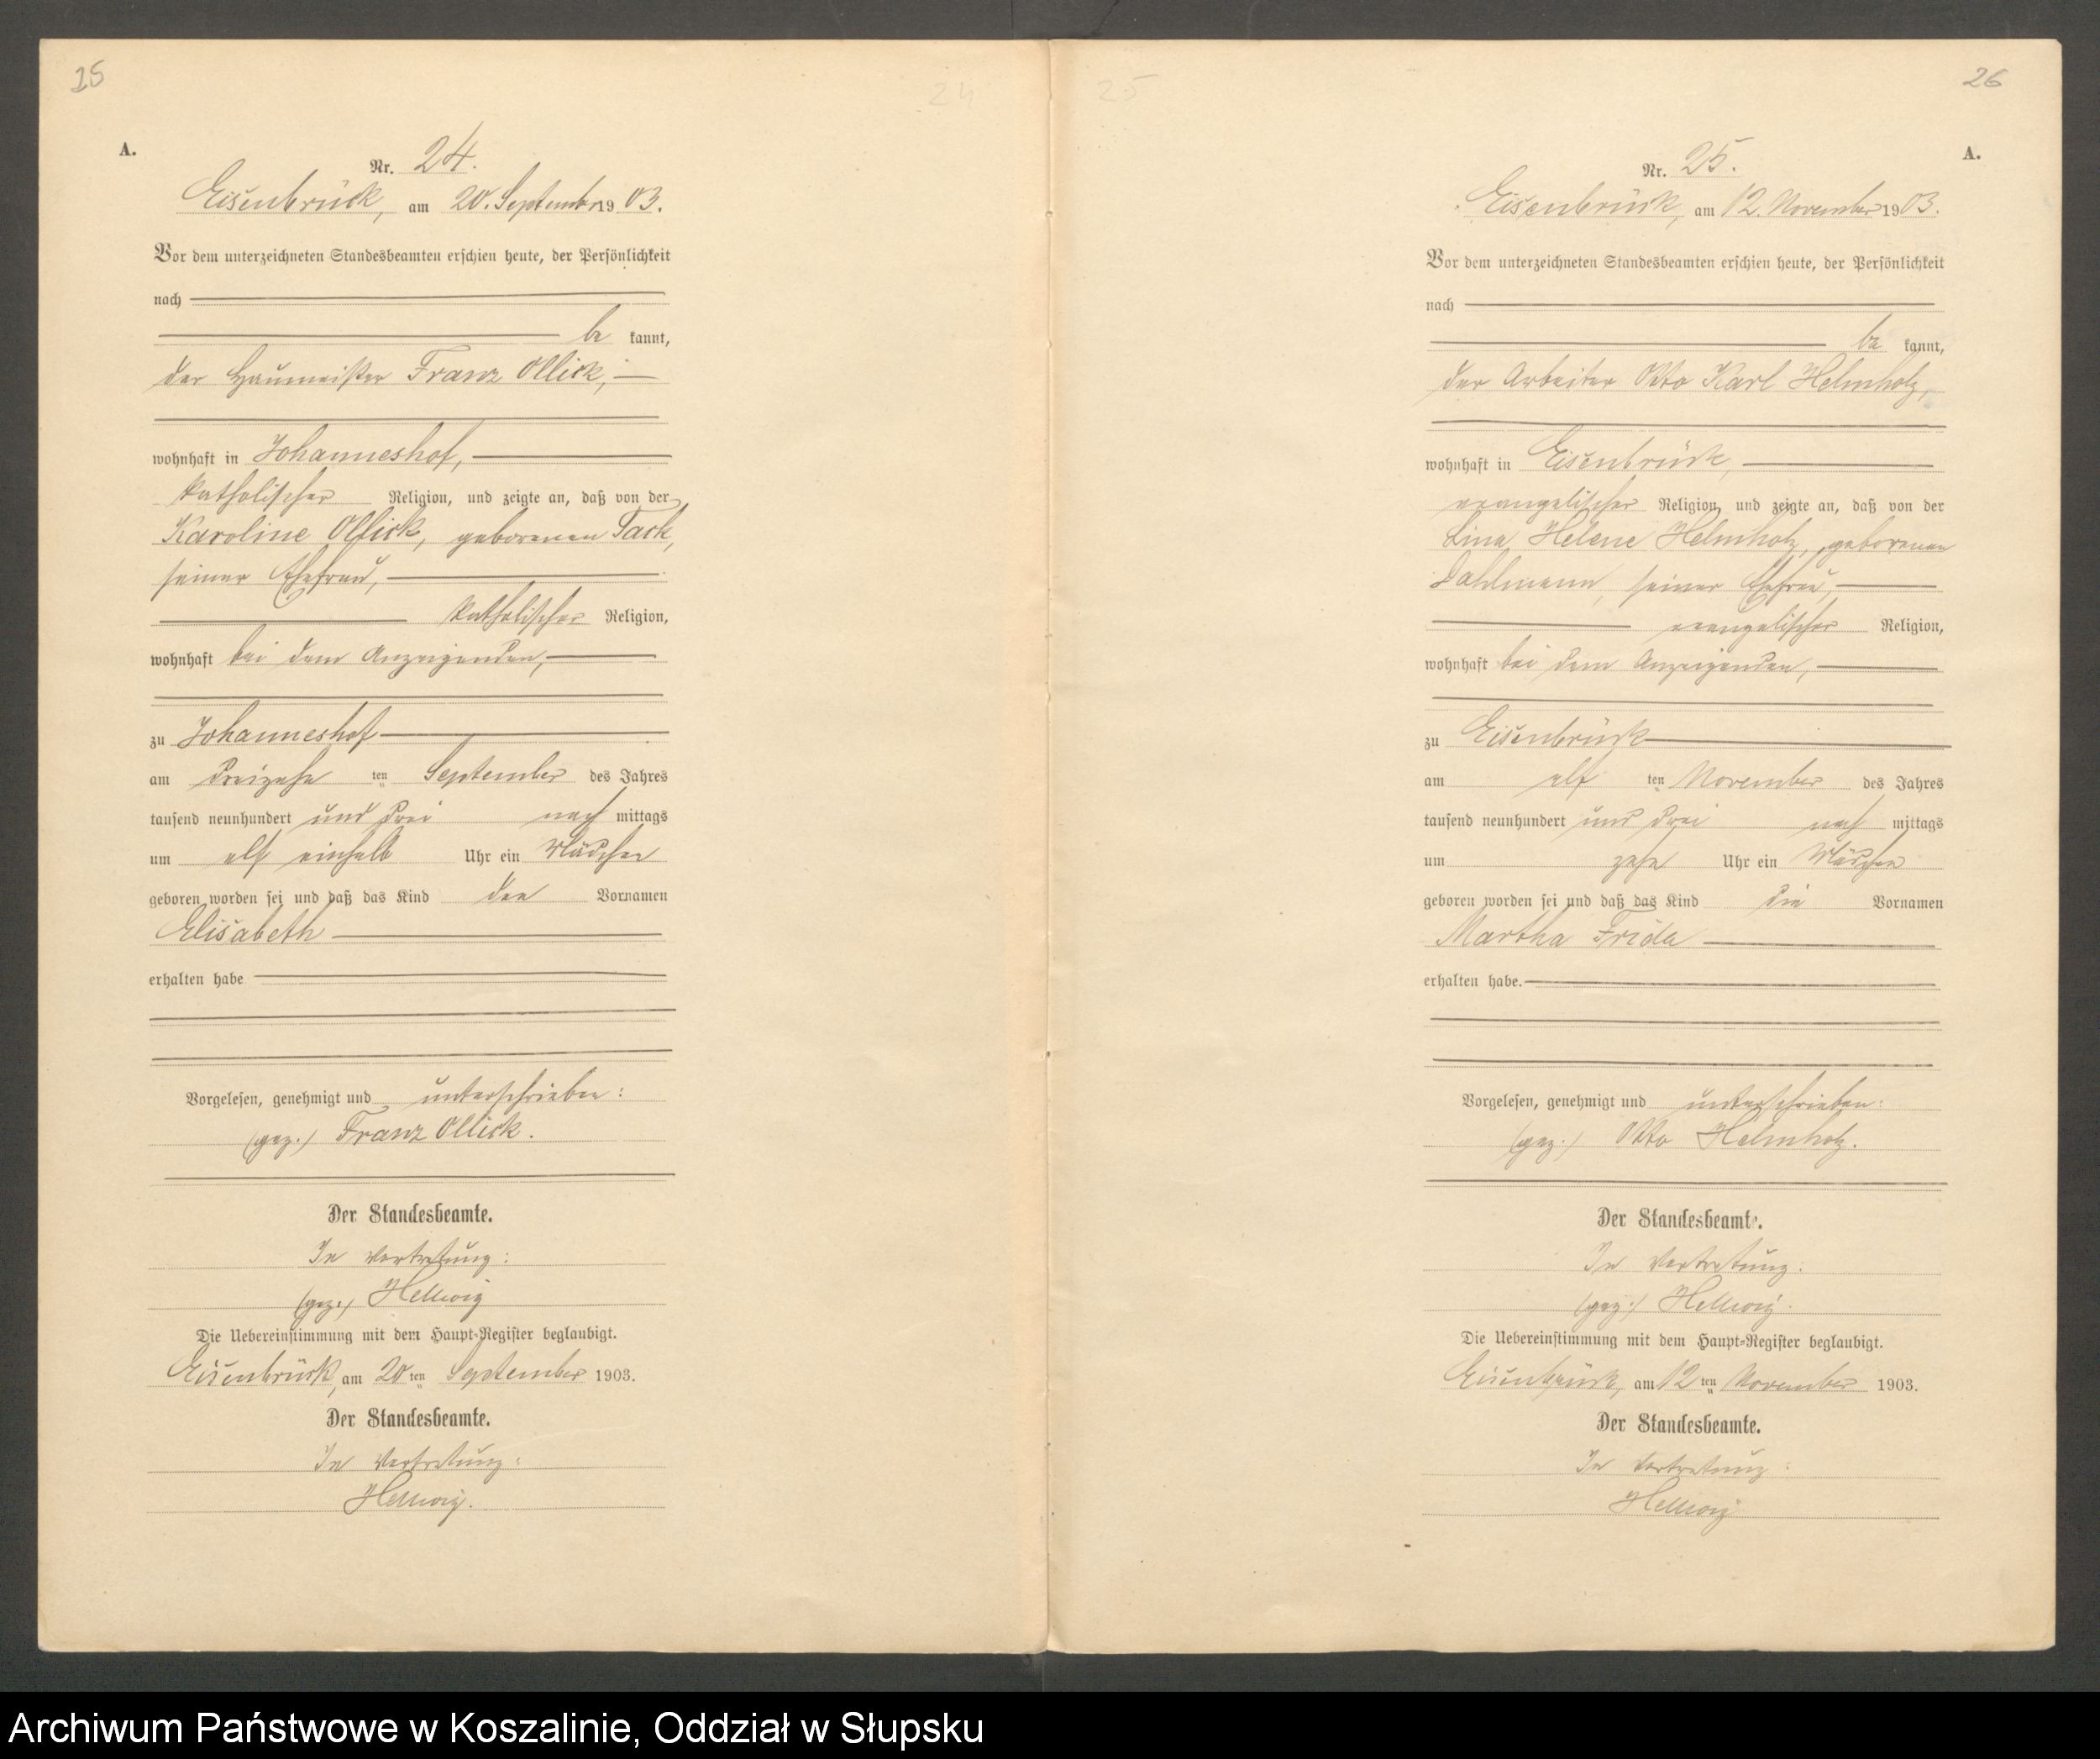 25
24
A.
Nr. 24.
Eisenbrück, am 20. September 1903.
Vor dem unterzeichneten Standesbeamten erschien heute, der Persönlichkeit
nach
be kannt,
der Haumeister Franz Ollick,
wohnhaft in Johanneshof,
katholischer Religion, und zeigte an, daß von der
Karoline Ollick, geborenen Tack,
seiner Ehefrau,
katholischer Religion,
wohnhaft bei dem Anzeigenden,
zu Johanneshof
am dreizehn ten September des Jahres
tausend neunhundert und drei nach mittags
um elf einhalb Uhr ein Mädchen
geboren worden sei und daß das Kind den Vornamen
Elisabeth
erhalten habe
Vorgelesen, genehmigt und unterschrieben:
(gez.) Franz Ollick.
Der Standesbeamte.
In Vertretung:
(gez.) Hellwig
Die Uebereinstimmung mit dem Haupt-Register beglaubigt.
Eisenbrück, am 20 ten September 1903.
Der Standesbeamte.
In Vertretung:
Hellwig.
25
26
A.
Nr. 25.
Eisenbrück, am 12. November 1903.
Vor dem unterzeichneten Standesbeamten erschien heute, der Persönlichkeit
nach
be kannt,
der Arbeiter Otto Karl Helmholz,
wohnhaft in Eisenbrück,
evangelischer Religion, und zeigte an, daß von der
Lina Helene Helmholz, geborenen
Dahlmann, seiner Ehefrau,
evangelischer Religion,
wohnhaft bei dem Anzeigenden,
zu Eisenbrück
am elf ten November des Jahres
tausend neunhundert und drei nach mittags
um zehn Uhr ein Mädchen
geboren worden sei und daß das Kind die Vornamen
Martha Frida
erhalten habe.
Vorgelesen, genehmigt und unterschrieben:
(gez.) Otto Helmholz.
Der Standesbeamte.
In Vertretung:
(gez.) Hellwig.
Die Uebereinstimmung mit dem Haupt-Register beglaubigt.
Eisenbrück, am 12 ten November 1903.
Der Standesbeamte.
In Vertretung:
Hellwig
Archiwum Państwowe w Koszalinie, Oddział w Słupsku